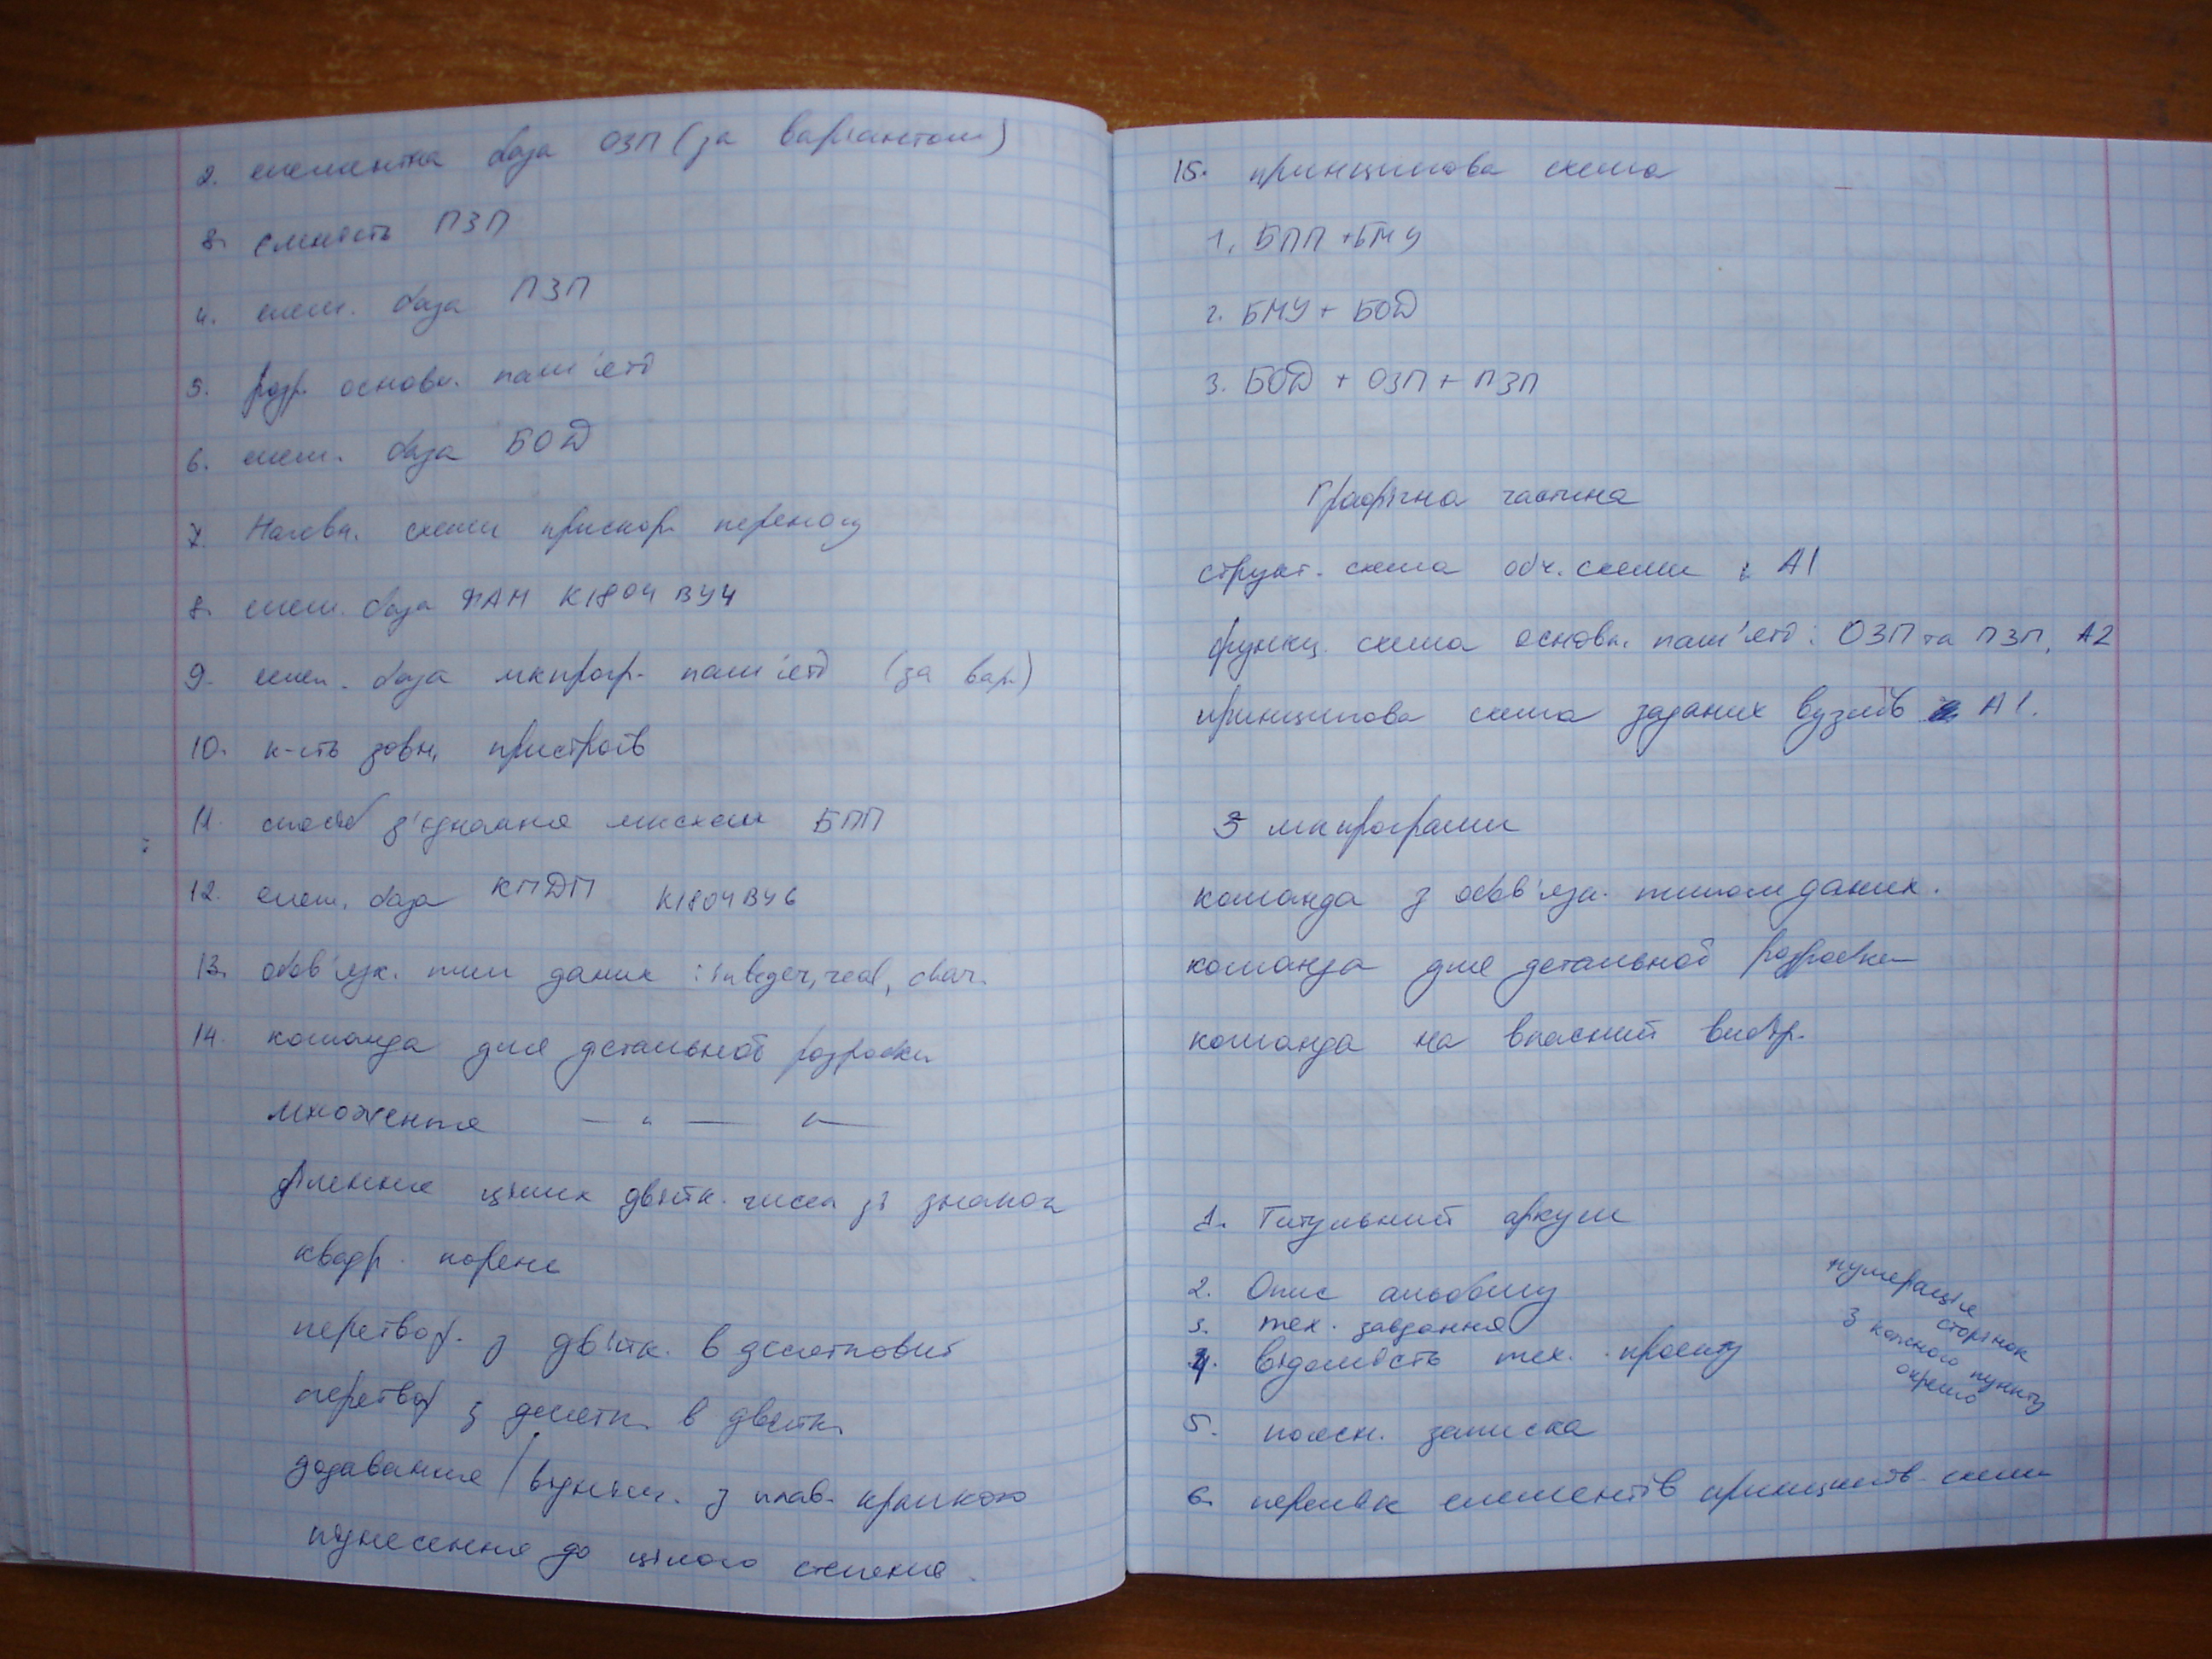 2. елементна база ОЗП (за варіантом)
3. ємність ПЗП
4. елем. база ПЗП
5. розр. основн. пам'яті
6. елем. база БОД
7. Наявн. схеми прискор. переносу
8. елем. база ПАМ К1804 ВУ4
9. елем. база мкпрогр. пам'яті (за вар.)
10. к-сть зовн. пристроїв
11. спосіб з'єднання мксхем БПП
12. елем. база КПДП К1804ВУ6
13. обов'язк. тип даних : integer, real, char.
14. команда для детальної розробки
множення — " — " —
ділення цілих двійк. чисел зі знаком
квадр. корень
перетвор. з двійк. в десяткові
перетвор з десятк. в двійк.
додавання / віднім. з плав. крапкою
піднесення до цілого степеня.
15. принципова схема
1. БПП + БМУ
2. БМУ + БОД
3. БОД + ОЗП + ПЗП
Графічна частина
структ. схема обч. схеми А1
функц. схема основн. пам'яті : ОЗП та ПЗП, А2
принципова схема заданих вузлів А1.
3 мкпрограми
команда з обов'язк. типом даних.
команда для детальної розробки
команда на власний вибір.
1. Титульний аркуш
2. Опис альбому
3. тех. завдання
4. відомість тех. проекту
5. поясн. записка
6. перелік елементів принципов. схеми
нумерація
сторінок
з кожного пункту
окремо